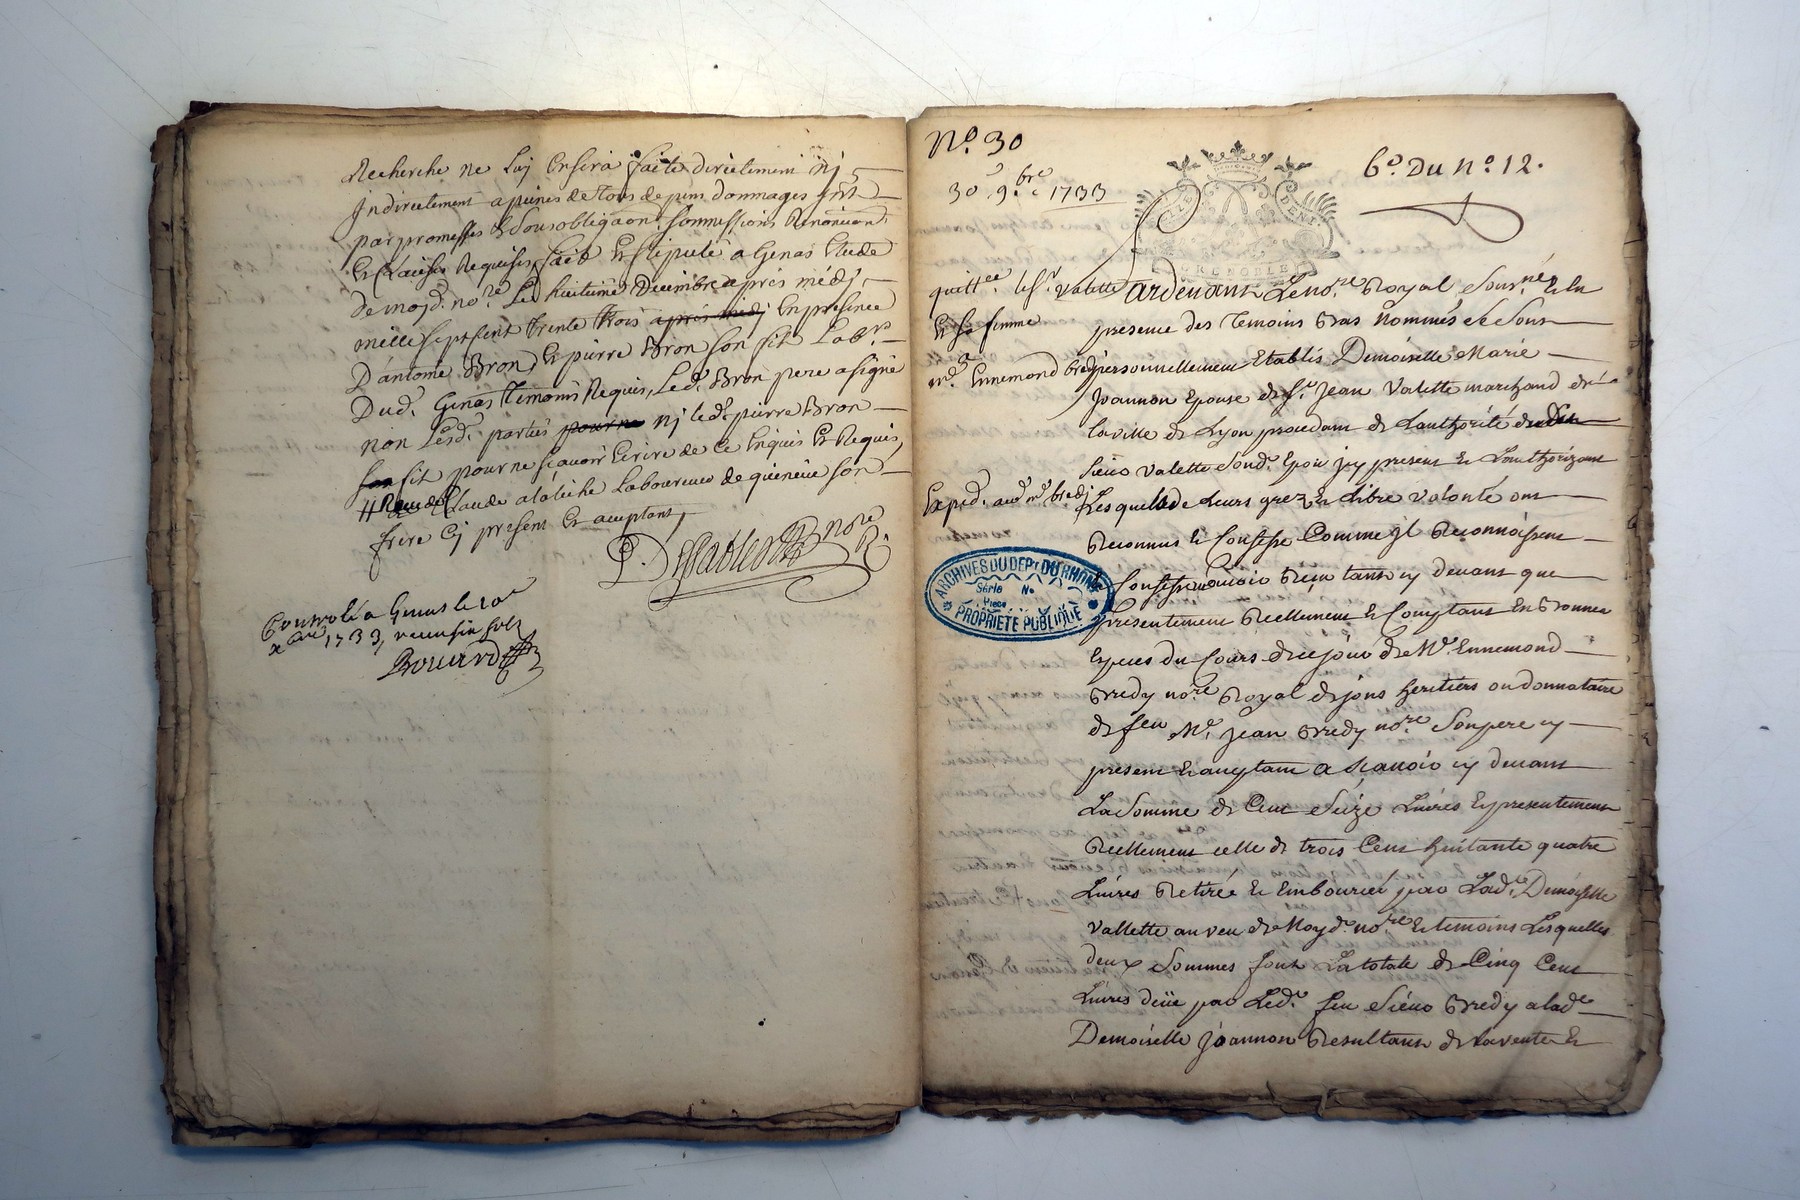 Recherche ne luy En sera faite directement nj
Indirectement a peines de tous depens dommages Intts
par promesses et Sous obligaon. Sommissions Renonciaon.
Et Clauses Requises, fait Et stipulé a Genas Etude
de moyd. nore. Le huitieme Decembre apres midj
mille sept sent trente trois apres midj En presence
D'antoine Bron, Et pierre Bron son fils Labr.
Dud. Genas Temoins Requis, Led. Bron pere a signé
non Lesd. parties nj led. pierre Bron
fils pour ne sçavoir Ecrire de ce Enquis Et Requis,
Claude Laboureur de son
frere Cj present Et acceptant,
nore R.
Controlé a Genas le 10e
xbre 1733,
Bouard
No. 30
30 9.bre 1733
6o. Du No. 12.
GRENOBLE
quittce. le sr. Valette
Et sa femme
Me. Ennemond bredj
Exped. aud. Me. bredj
Pardevant Le nore. Royal Sousné. Et En
presence des Temoins Bas Nommés se Sont
personnellement Etablis Demoiselle Marie
Joannon Epouse de Sr. Jean Valette marchand de
la ville de Lyon procedant de L'authorité dudit
Sieur Valette Sond. Epoux jcy present Et L'authorizant
Lesquels de Leurs grez Et Libre Volonté ont
Reconnus Et Confessé Comme jl Reconnoissent
Et Confessent avoir Reçu tant cy devant que
presentement Reellement Et Comptant En Bonnes
Especes du Cours de ce jour de Me. Ennemond
Bredy nore. Royal de jons heritiers ou donnataire
de feu Me. Jean Bredy nore. Son pere cy
present Et acceptant a Scavoir cy devant
La Somme de Cent Seize Livres Et presentement
Reellement celle de trois Cent huitante quatre
Livres Retirée Et Emboursée par Lade. Demoiselle
Vallette au veu de Moyd. nore. Et temoins Lesquelles
deux Sommes font La totale de Cinq Cent
Livres deüe par Led. feu Sieur Bredy a lade.
Demoiselle Joannon Resultant de la vente Et
ARCHIVES DU DEPT. DU RHÔNE
Série No
Pièce
PROPRIÉTÉ PUBLIQUE